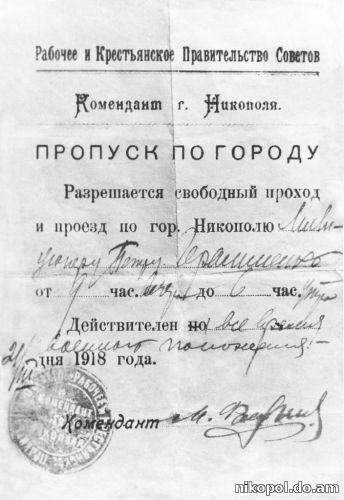 Рабочее и Крестьянское Правительство Советов
Комендант г. Никополя.
ПРОПУСК ПО ГОРОДУ
Разрешается свободный проход
и проезд по гор. Никополю Мили-
ционеру Петру Герасименко
от 9 час. до 6 час. утра
Действителен по все время
военного положения
дня 1918 года.
Комендант М.
nikopol.do.am